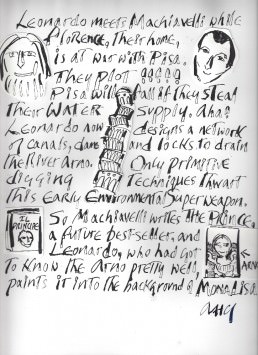 Leonardo meets Machiavelli while
Florence, their home,
is at war with Pisa.
They plot
Pisa will fall if they steal
their WATER supply. Aha!
Leonardo now designs a network
of canals, dams and locks to drain
the River Arno. Only primitive
digging techniques thwart
this early Environmental Superweapon.
So Machiavelli writes THE PRINCE,
a future best-seller, and
Leonardo, who had got
to know the Arno pretty well,
paints it into the background of MONA LISA.
IL
PRINCIPE
ARNO